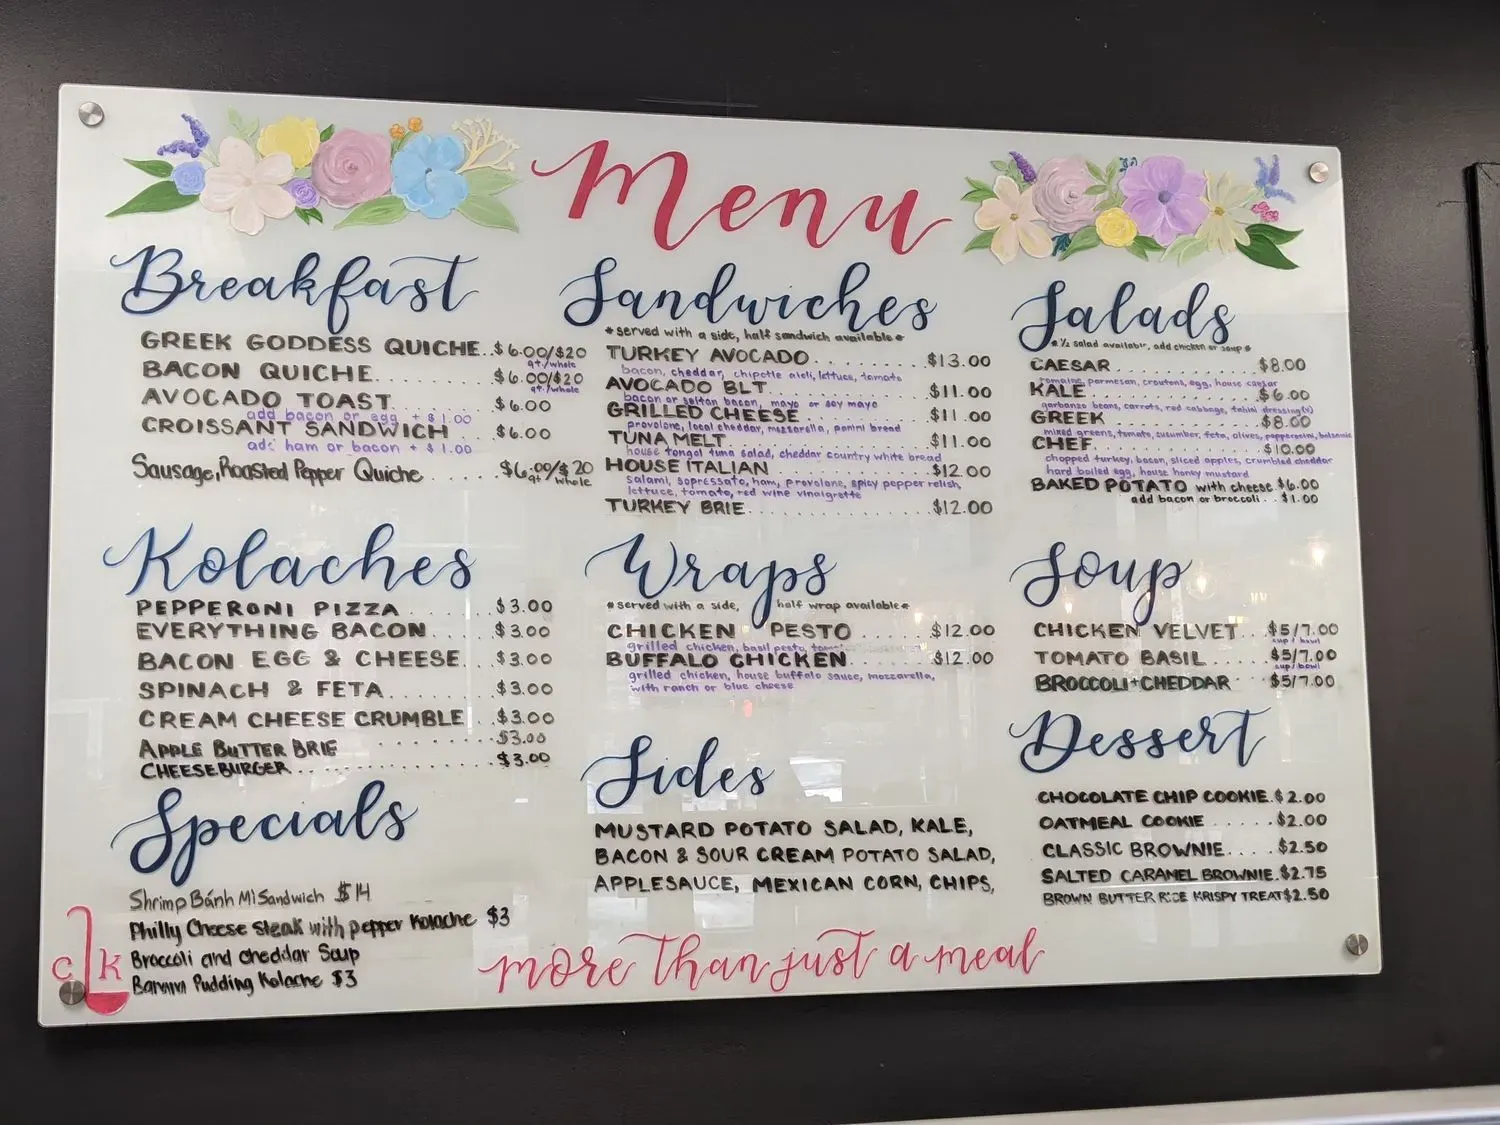 Menu
Breakfast
GREEK GODDESS QUICHE..$6.00/$20
qt./whole
BACON QUICHE......... $6.00/$20
qt./whole
AVOCADO TOAST ...... $6.00
add bacon or egg + $1.00
CROISSANT SANDWICH ... $6.00
add ham or bacon + $1.00
Sausage, Roasted Pepper Quiche ..... $6.00/$20
qt. whole
Kolaches
PEPPERONI PIZZA ...... $3.00
EVERYTHING BACON ..... $3.00
BACON EGG & CHEESE... $3.00
SPINACH & FETA........ $3.00
CREAM CHEESE CRUMBLE ..$3.00
APPLE BUTTER BRIE ........$3.00
CHEESEBURGER.............$3.00
Specials
Shrimp Bánh Mì Sandwich $14
Philly Cheese Steak with pepper Kolache $3
Broccoli and cheddar Soup
Banana Pudding Kolache $3
c k
Sandwiches
*served with a side, half sandwich available*
TURKEY AVOCADO........$13.00
bacon, cheddar, chipotle aioli, lettuce, tomato
AVOCADO BLT...........$11.00
bacon or seitan bacon, mayo or soy mayo
GRILLED CHEESE........$11.00
provolone, local cheddar, mozzarella, panini bread
TUNA MELT.............$11.00
house tongol tuna salad, cheddar country white bread
HOUSE ITALIAN..........$12.00
salami, sopressata, ham, provolone, spicy pepper relish,
lettuce, tomato, red wine vinaigrette
TURKEY BRIE............$12.00
Wraps
*served with a side, half wrap available*
CHICKEN PESTO ......$12.00
grilled chicken, basil pesto,
BUFFALO CHICKEN.......$12.00
grilled chicken, house buffalo sauce, mozzarella,
with ranch or blue cheese
Sides
MUSTARD POTATO SALAD, KALE,
BACON & SOUR CREAM POTATO SALAD,
APPLESAUCE, MEXICAN CORN, CHIPS,
Salads
*½ salad available, add chicken or soup*
CAESAR ............$8.00
romaine, parmesan, croutons, egg, house caesar
KALE...............$6.00
garbanzo beans, carrots, red cabbage, tahini dressing(v)
GREEK .............$8.00
mixed greens, tomato, cucumber, feta, olives, pepperoncini, balsamic
CHEF...............$10.00
chopped turkey, bacon, sliced apples, crumbled cheddar
hard boiled egg, house honey mustard
BAKED POTATO with cheese $6.00
add bacon or broccoli .. $1.00
Soup
CHICKEN VELVET...$5/7.00
cup / bowl
TOMATO BASIL ......$5/7.00
cup / bowl
BROCCOLI+CHEDDAR ...$5/7.00
Dessert
CHOCOLATE CHIP COOKIE.$2.00
OATMEAL COOKIE ......$2.00
CLASSIC BROWNIE.....$2.50
SALTED CARAMEL BROWNIE.$2.75
BROWN BUTTER RICE KRISPY TREAT $2.50
more than just a meal